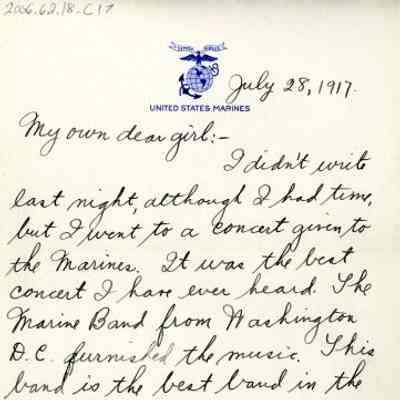 2006.62.18-C17
SEMPER FIDELIS
July 28, 1917.
UNITED STATES MARINES
My own dear girl:-
I didn't write
last night, although I had time,
but I went to a concert given to
the Marines. It was the best
concert I have ever heard. The
Marine Band from Washington
D.C. furnished the music. This
band is the best band in the